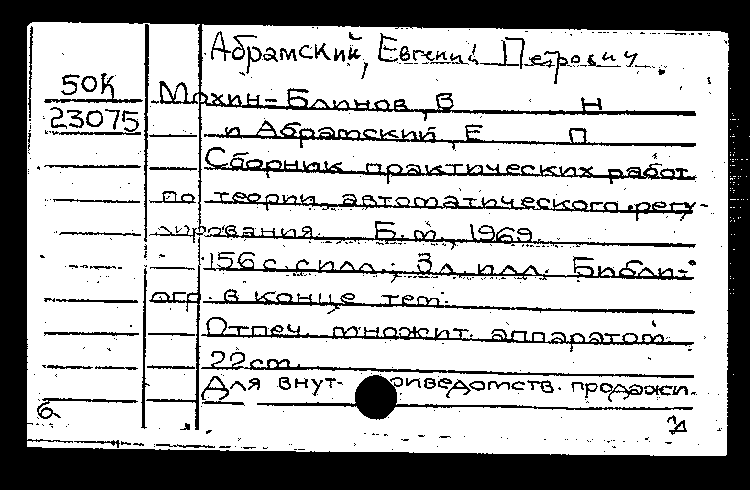 Абрамский, Евгений Петрович.
50К
23075
Мохин-Блинов, В Н
и Абрамский, Е П
Сборник практических работ
по теории автоматического регу-
лирования. Б.м., 1969.
156 с. с илл.; 3 л. илл. Библи-
огр. в конце тем.
Отпеч. множит. аппаратом.
22 см.
Для внут- риведомств. продажи.
б